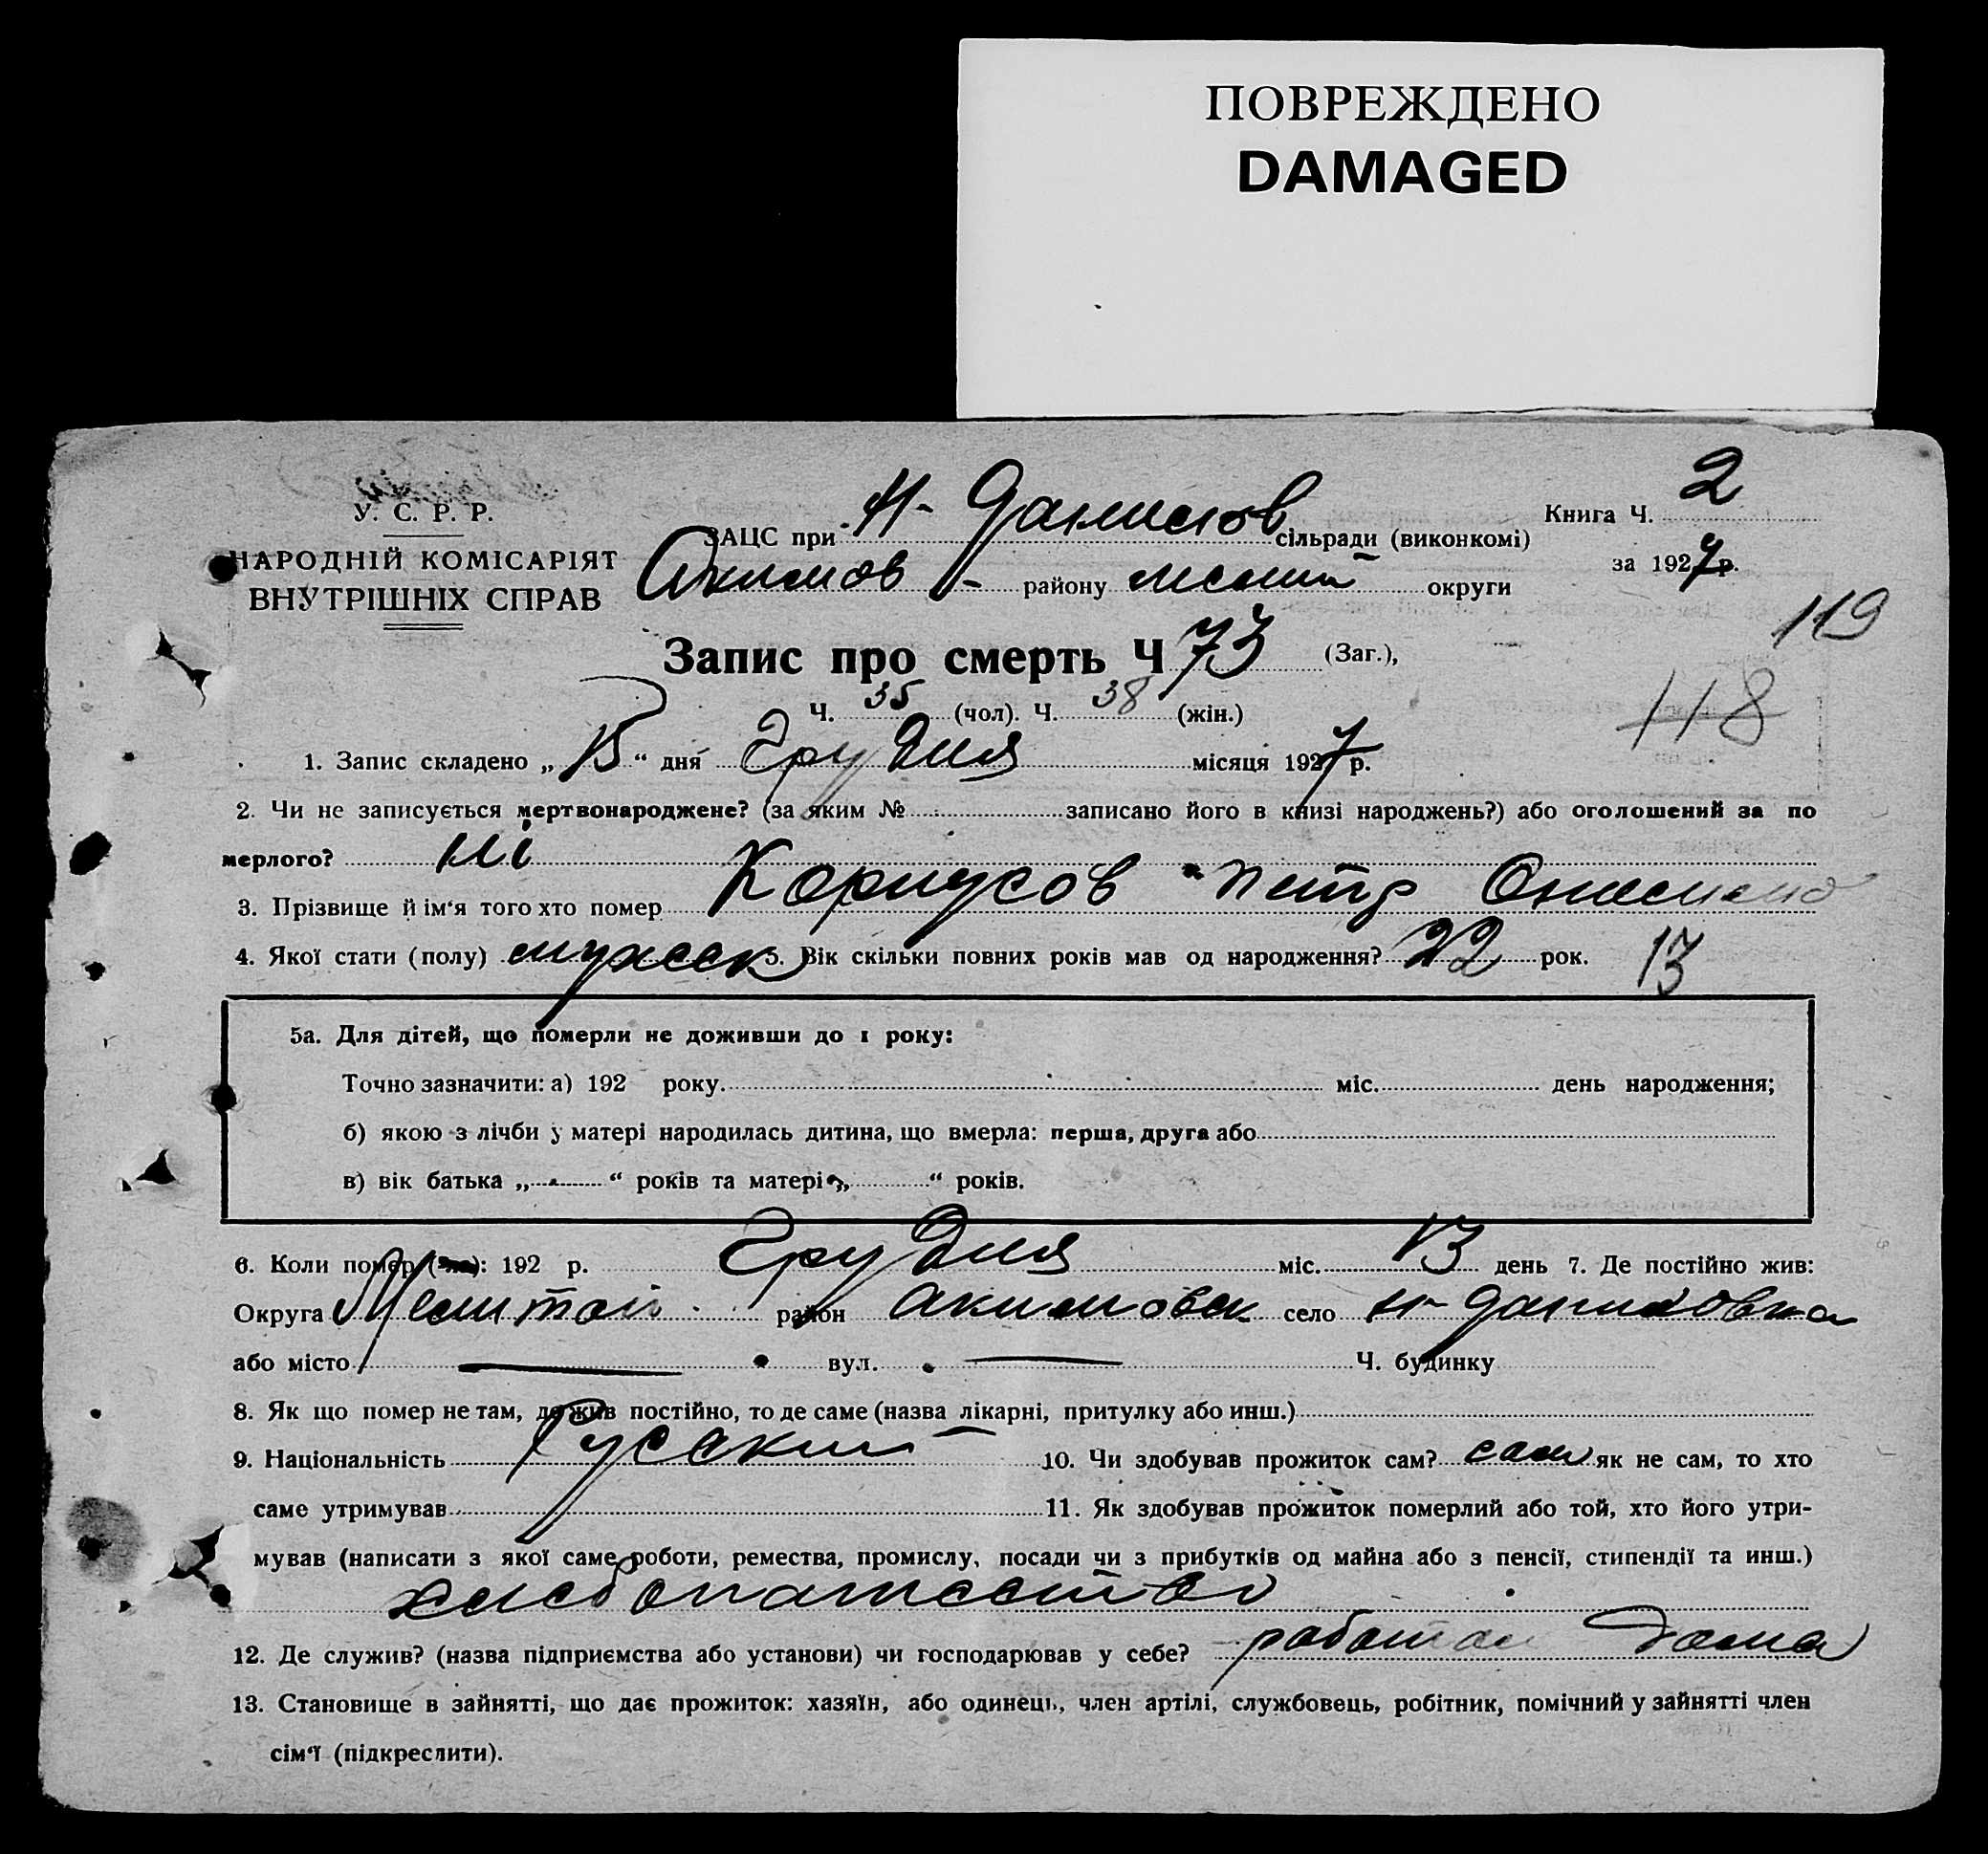 ПОВРЕЖДЕНО
DAMAGED
У. С. Р. Р.
НАРОДНІЙ КОМІСАРІЯТ
ВНУТРІШНІХ СПРАВ
Книга Ч. 2
за 1927 р.
ЗАЦС при Н-Данилов сільради (виконкомі)
Акимов - району округи
119
Запис про смерть Ч 73 (Заг.),
118
Ч. 35 (чол). Ч. 38 (жін.)
1. Запис складено „ “ дня Грудня місяця 1927 р.
2. Чи не записується мертвонароджене? (за яким № записано його в книзі народжень?) або оголошений за по
мерлого? ні
3. Прізвище й ім‘я того хто помер Корнусов Петр
4. Якої стати (полу) мужеск 5. Вік скільки повних років мав од народження? 22 рок. 13
5а. Для дітей, що померли не доживши до 1 року:
Точно зазначити: а) 192 року. міс. день народження;
б) якою з лічби у матері народилась дитина, що вмерла: перша, друга або
в) вік батька „ “ років та матері „ “ років.
6. Коли помер ( ): 192 р. Грудня міс. 13 день 7. Де постійно жив:
Округа район Акимовск село Н-Даниловка
або місто — вул. — Ч. будинку
8. Як що помер не там, де жив постійно, то де саме (назва лікарні, притулку або инш.)
9. Національність Русский 10. Чи здобував прожиток сам? сам як не сам, то хто
саме утримував 11. Як здобував прожиток померлий або той, хто його утри-
мував (написати з якої саме роботи, ремества, промислу, посади чи з прибутків од майна або з пенсії, стипендії та инш.)
хлебопашество
12. Де служив? (назва підприємства або установи) чи господарював у себе? работал дома
13. Становище в зайнятті, що дає прожиток: хазяїн, або одинець, член артілі, службовець, робітник, помічний у зайнятті член
сім‘ї (підкреслити).